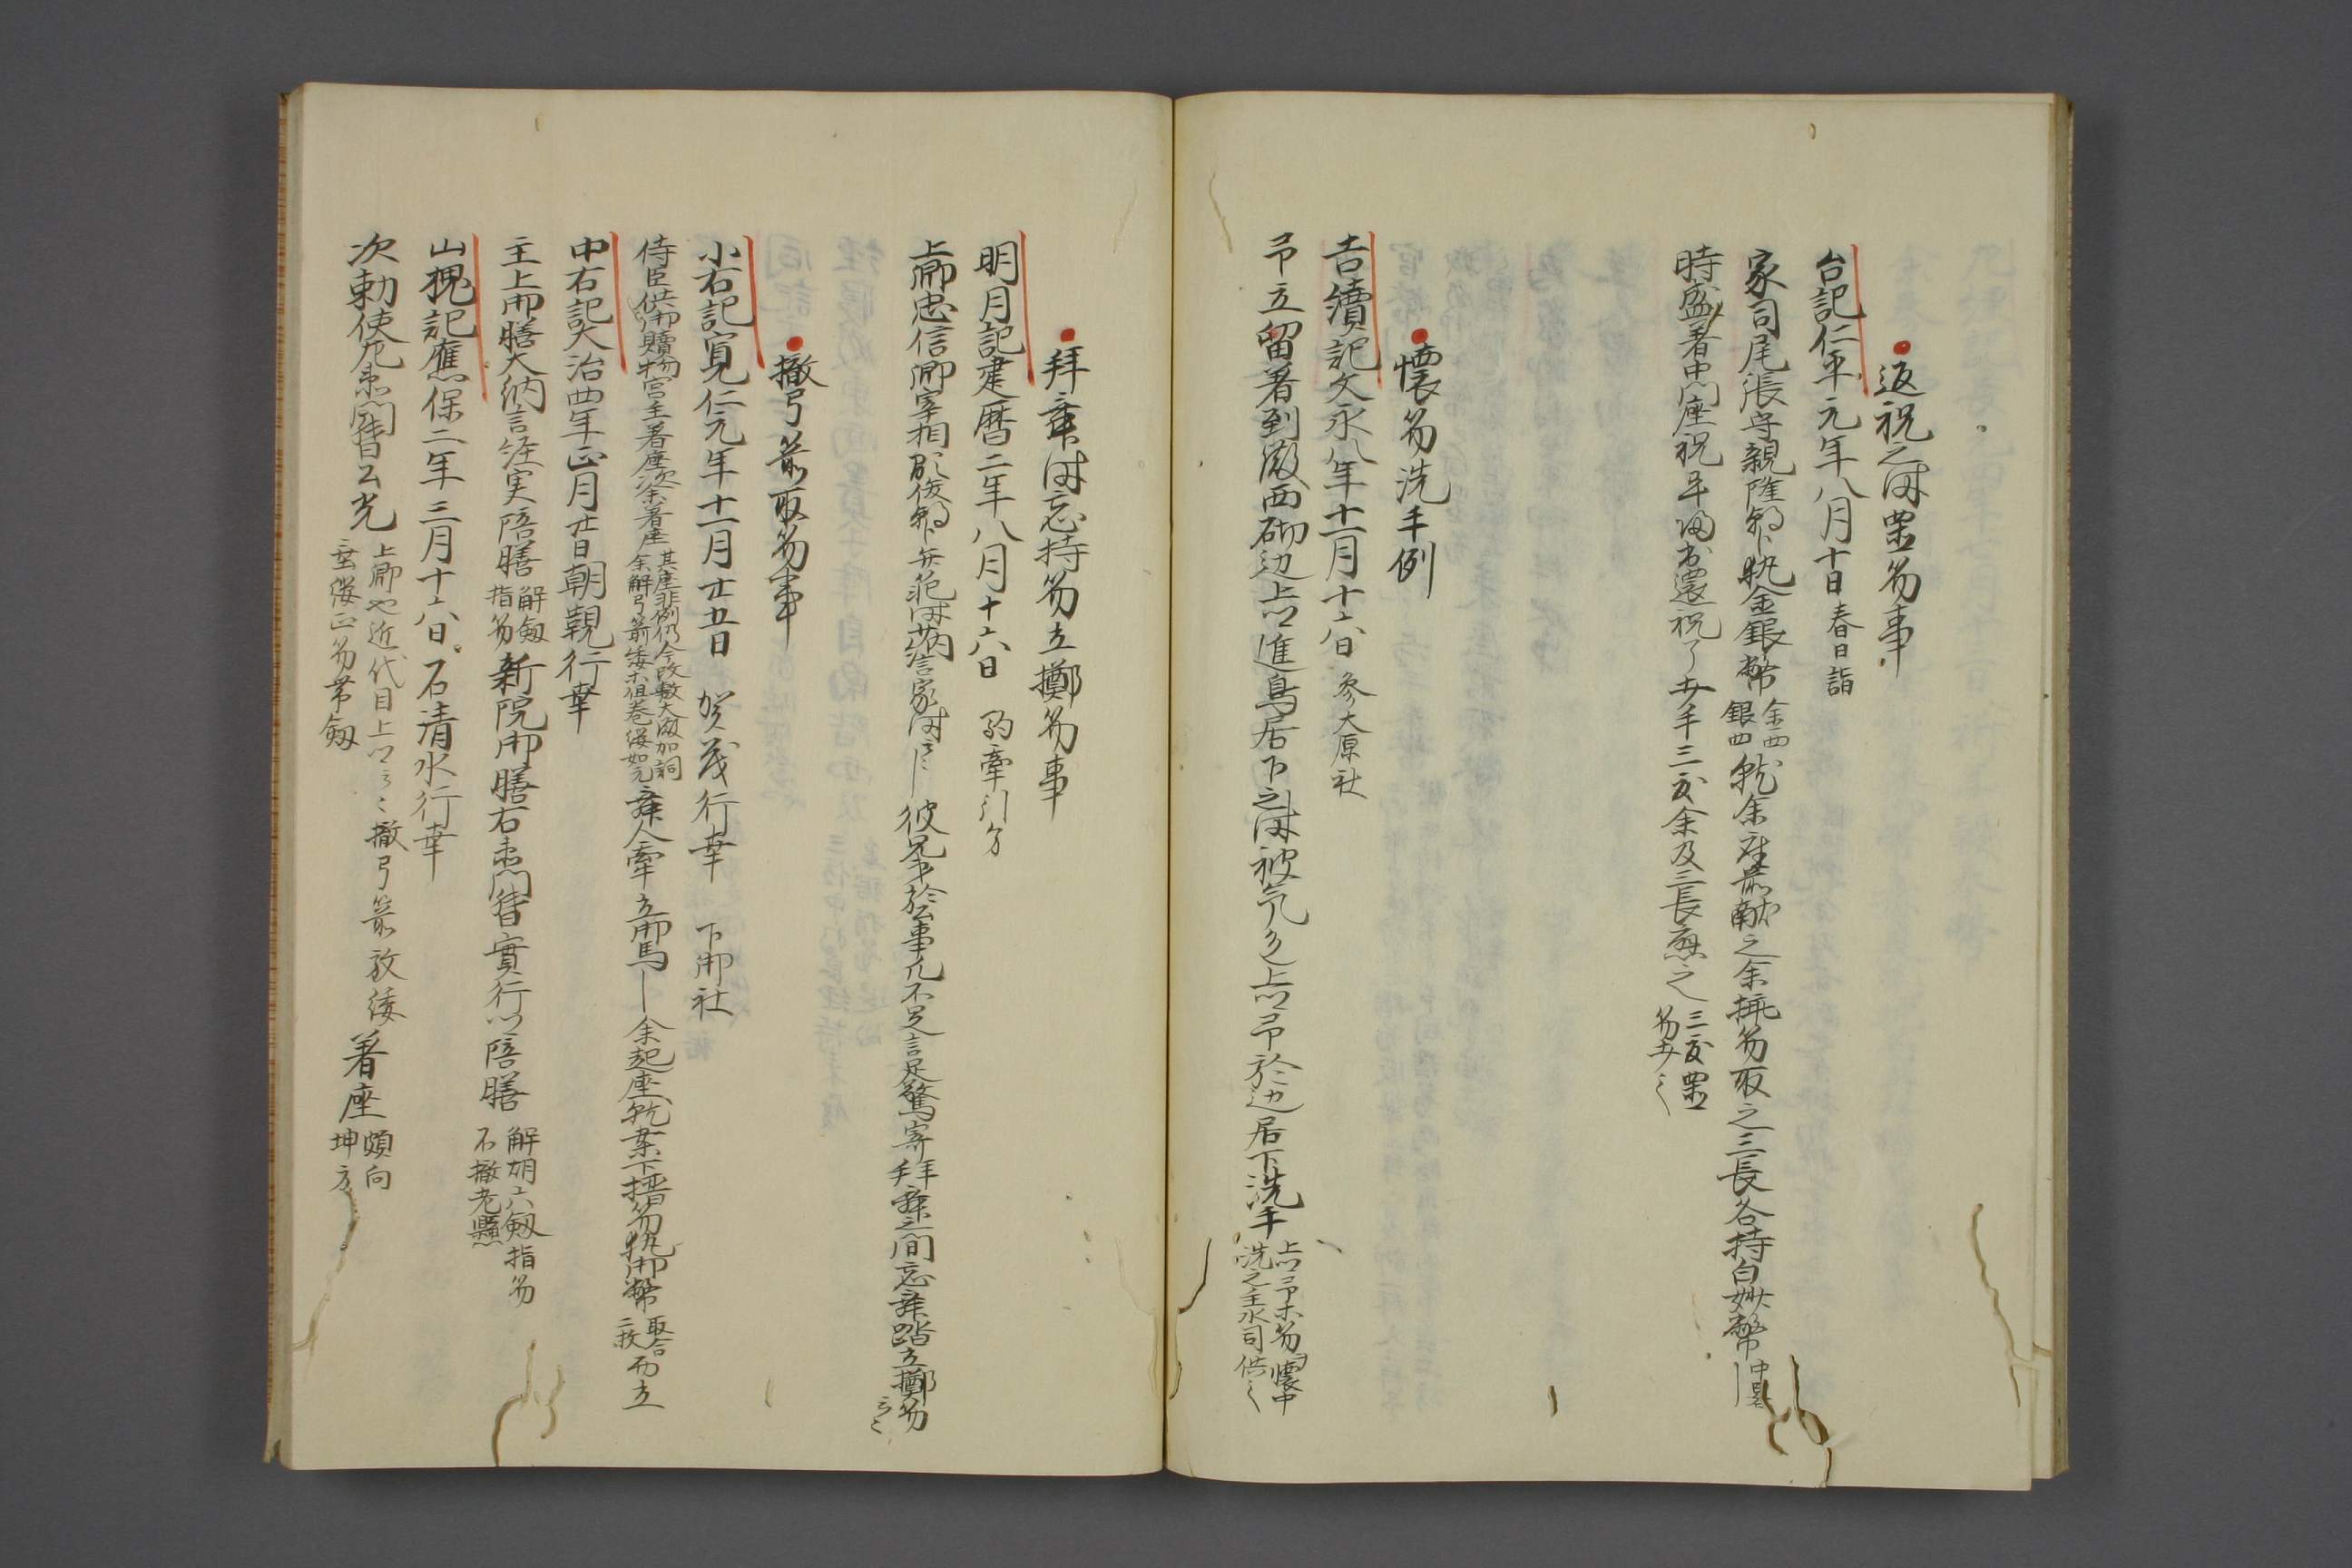 返祝之時置笏事
台記仁平元年八月十日 春日詣
家司尾張守親隆朝臣執金銀幣 金四 銀四 就余座前献之余搢笏取之三長各持白妙幣 中臣
時盛着中門座祝畢 還祝了 手三度余及三長應之 三度置 笏
懐笏洗手例
吉續記文永八年十一月十六日 参大原社
予立留着到殿西砌辺上卿進鳥居下之時被 上卿予於辺居下洗手 上卿予等笏懐中 洗之主水司供之
拝舞時忘持笏立擲笏事
明月記建暦二年八月十六日 駒牽引分
上卿忠信卿宰相 朝臣 彼兄弟於公事凡不足言足驚寄拝舞之間忘舞踏立擲笏云々
撤弓箭取笏事
小右記寛仁元年十一月廿五日 賀茂行幸 下御社
侍臣供御贖物宮主着座次余着座 其座非例仍令改敷大殿加詞 余解弓箭緌等但巻纓如元 舞人牽立御馬 余起座就案下搢笏執御幣 取合 二枚 而立
中右記大治四年正月廿日朝覲行幸
主上御膳大納言経実陪膳 解劔 指笏 新院御膳右衛門督實行以陪膳 解胡六劔指笏 不撤老懸
山槐記應保二年三月十六日石清水行幸
次勅使左衛門督公光 上卿也近代目上卿云々撤弓箭放緌 垂纓正笏帯劔 着座 頗向 坤方